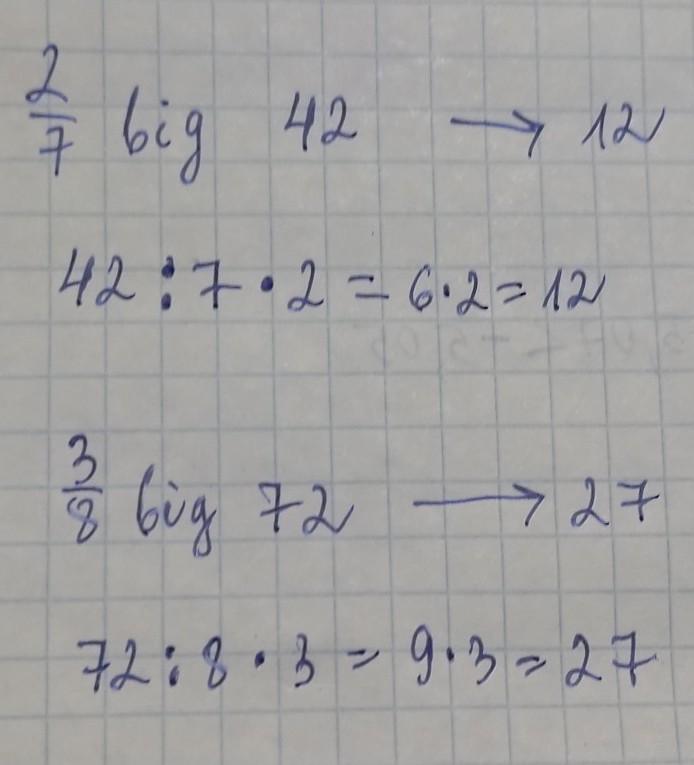 2/7 від 42 → 12
42 : 7 · 2 = 6 · 2 = 12
3/8 від 72 → 27
72 : 8 · 3 = 9 · 3 = 27